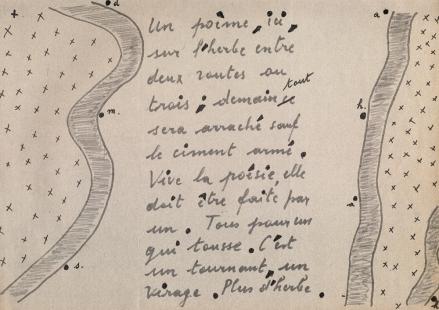 Un poème, ici,
sur l'herbe entre
deux routes ou
trois ; demain tout
sera arraché sauf
le ciment armé.
Vive la poésie, elle
doit être faite par
un. Tous pour un
qui tousse. C'est
un tournant, un
virage. Plus d'herbe.
d
m.
s.
a
h.